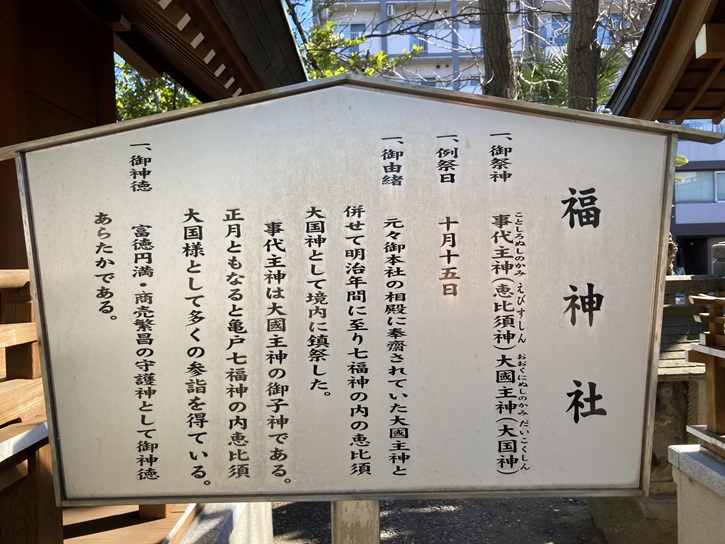 福神社
一、御祭神 事代主神(恵比須神)大國主神(大国神)
ことしろぬしのかみ えびすしん おおくにぬしのかみ だいこくしん
一、例祭日 十月十五日
一、御由緒 元々御本社の相殿に奉齋されていた大國主神と
併せて明治年間に至り七福神の内の恵比須
大国神として境内に鎮祭した。
事代主神は大國主神の御子神である。
正月ともなると亀戸七福神の内恵比須
大国様として多くの参詣を得ている。
一、御神徳 富徳円満・商売繁昌の守護神として御神徳
あらたかである。